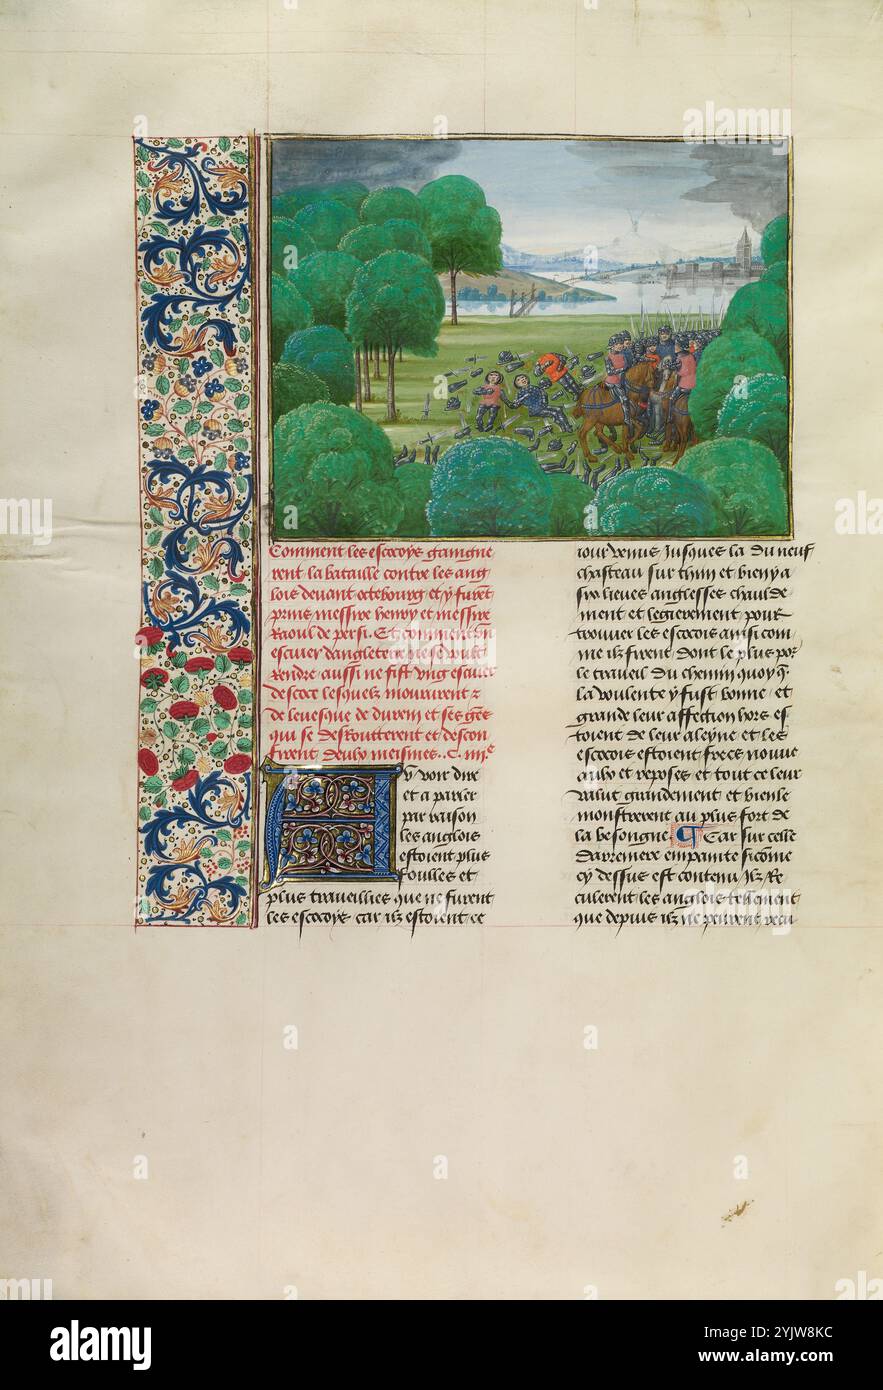 Comment les escocoys gaingne
rent la bataille contre les ang
lois deuant octebourg et y furēt
prins messire henry et messire
Raoul de persi. Et comment vn
escuier dangleterre ne se voult
rendre aussi ne fist vng escuier
descoce lesquelz mourirent
de leuesque de durem et ses gēs
qui se desroutterent et descon
firent deulx meismes. C. iiij.e
A v voir dire
et a parler
par raison
les anglois
estoient plus
foulles et
plus trauaillies que ne furent
les escocoys car ilz estoient ce
iour venus Jusques la du neuf
chasteau sur thin et bien y a
six lieues anglesses chaulde
ment et legierement pour
trouuer les escocois ainsi com
me ilz firent dont le plus por
le traueil du chemin quoy q̄
la voulente y fust bonne et
grande leur affection hors es
toient de leur aleyne et les
escocois estoient frecs nouue
aulx et reposes et tout ce leur
valut grandement et bien le
monstrerent au plus fort de
la besongne ¶ Car sur celle
darreniere empainte sicōme
cy dessus est contenu ilz Re
culerent les anglois tellement
que depuis ilz ne peurent recu
alamy
Image ID: 2YJW8KC
www.alamy.com